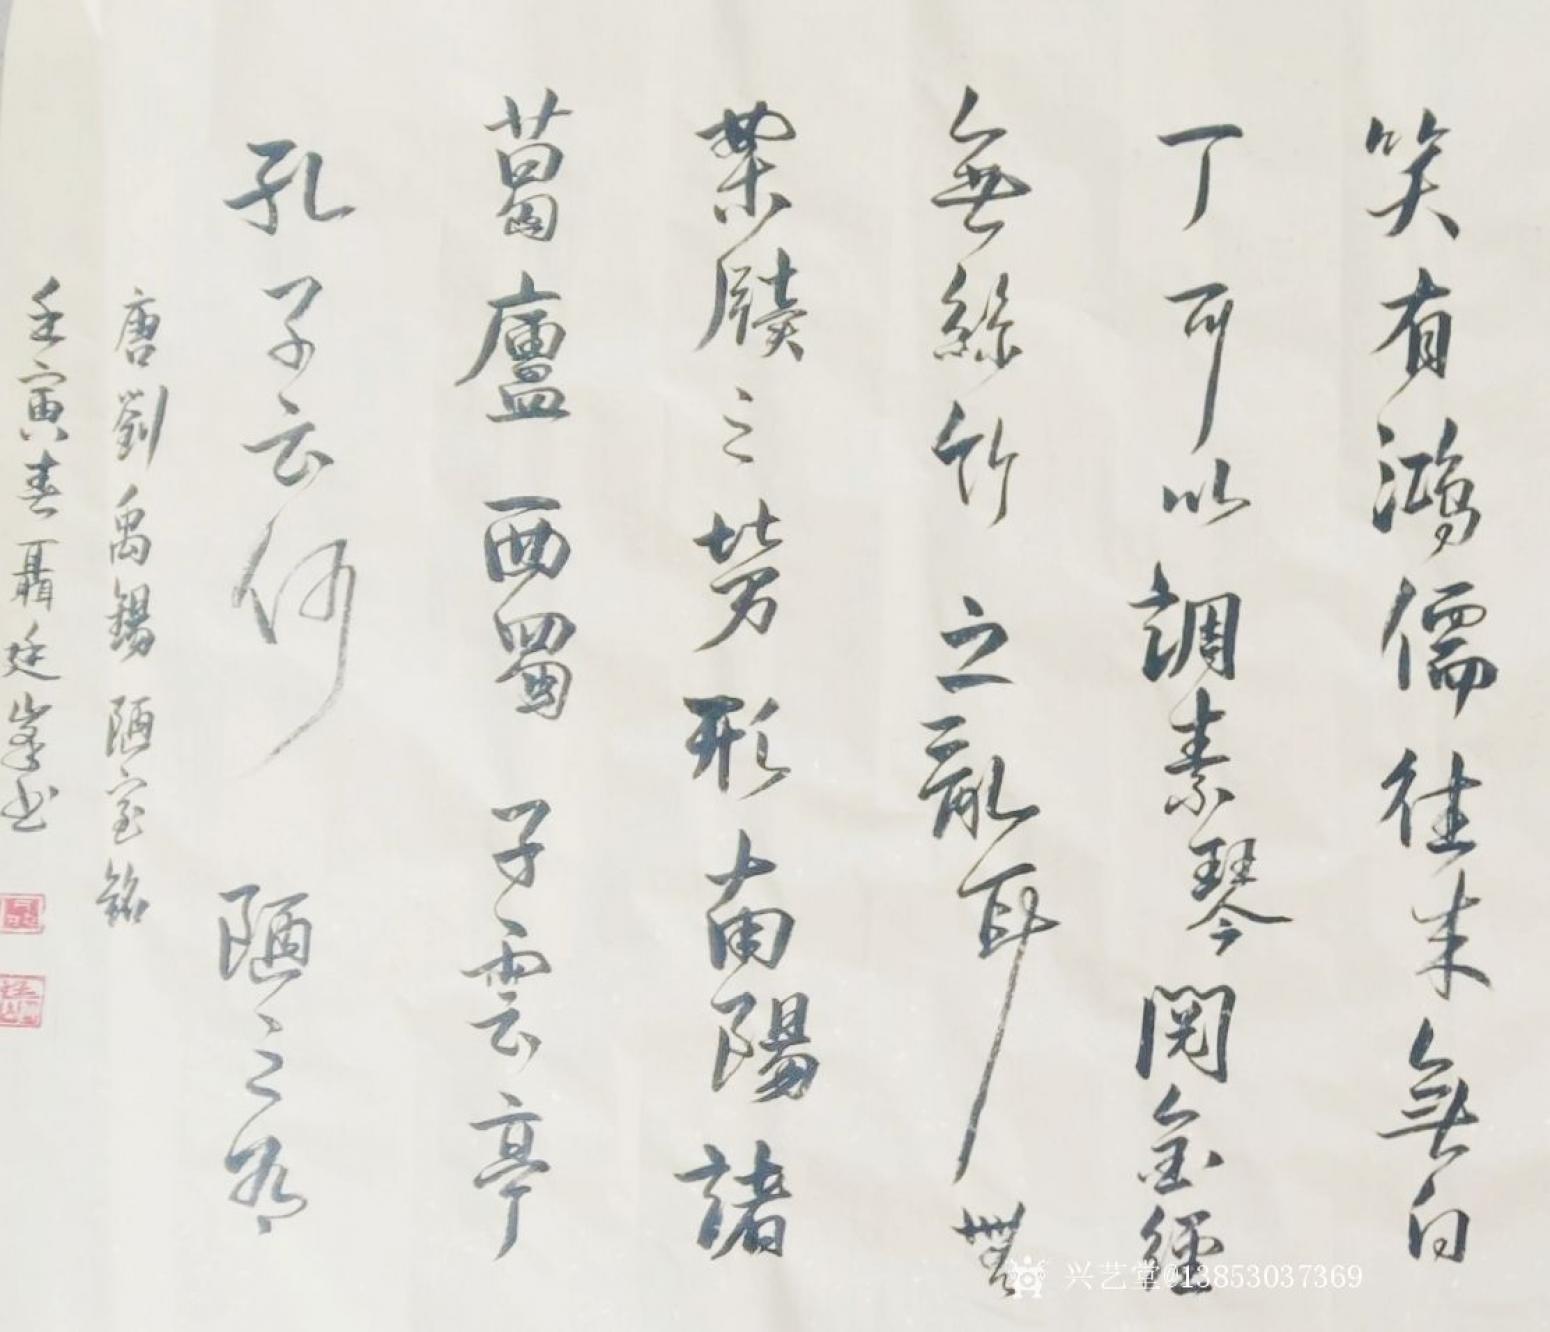 笑有鴻儒往来無白
丁可以調素琴閱金經
無絲竹之亂耳無
案牘之勞形南陽諸
葛廬西蜀子雲亭
孔子云何陋之有
唐劉禹錫陋室銘
壬寅春聶廷峯书
兴艺堂@13853037369